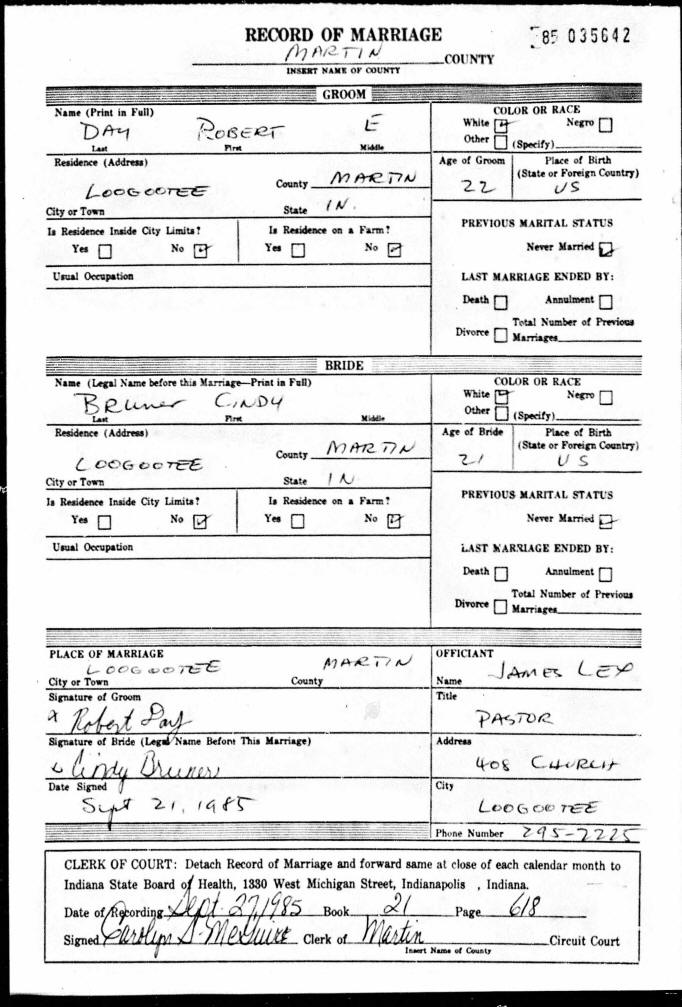 RECORD OF MARRIAGE
85 035642
MARTIN COUNTY
INSERT NAME OF COUNTY
GROOM
Name (Print in Full)
DAY ROBERT E
Last First Middle
COLOR OR RACE
White Negro
Other (Specify)
Residence (Address)
LOOGOOTEE County MARTIN
City or Town State IN.
Age of Groom
22
Place of Birth
(State or Foreign Country)
US
Is Residence Inside City Limits?
Yes No
Is Residence on a Farm?
Yes No
PREVIOUS MARITAL STATUS
Never Married
Usual Occupation
LAST MARRIAGE ENDED BY:
Death Annulment
Divorce Total Number of Previous
Marriages
BRIDE
Name (Legal Name before this Marriage—Print in Full)
Bruner CINDY
Last First Middle
COLOR OR RACE
White Negro
Other (Specify)
Residence (Address)
LOOGOOTEE County MARTIN
City or Town State IN
Age of Bride
21
Place of Birth
(State or Foreign Country)
US
Is Residence Inside City Limits?
Yes No
Is Residence on a Farm?
Yes No
PREVIOUS MARITAL STATUS
Never Married
Usual Occupation
LAST MARRIAGE ENDED BY:
Death Annulment
Divorce Total Number of Previous
Marriages
PLACE OF MARRIAGE
LOOGOOTEE MARTIN
City or Town County
Signature of Groom
x Robert Day
Signature of Bride (Legal Name Before This Marriage)
Cindy Bruner
Date Signed
Sept 21, 1985
OFFICIANT
Name JAMES LEX
Title
PASTOR
Address
408 CHURCH
City
LOOGOOTEE
Phone Number 295-2225
CLERK OF COURT: Detach Record of Marriage and forward same at close of each calendar month to
Indiana State Board of Health, 1330 West Michigan Street, Indianapolis , Indiana.
Date of Recording Sept. 27, 1985 Book 21 Page 618
Signed Carolyn S. McGuire Clerk of Martin Circuit Court
Insert Name of County